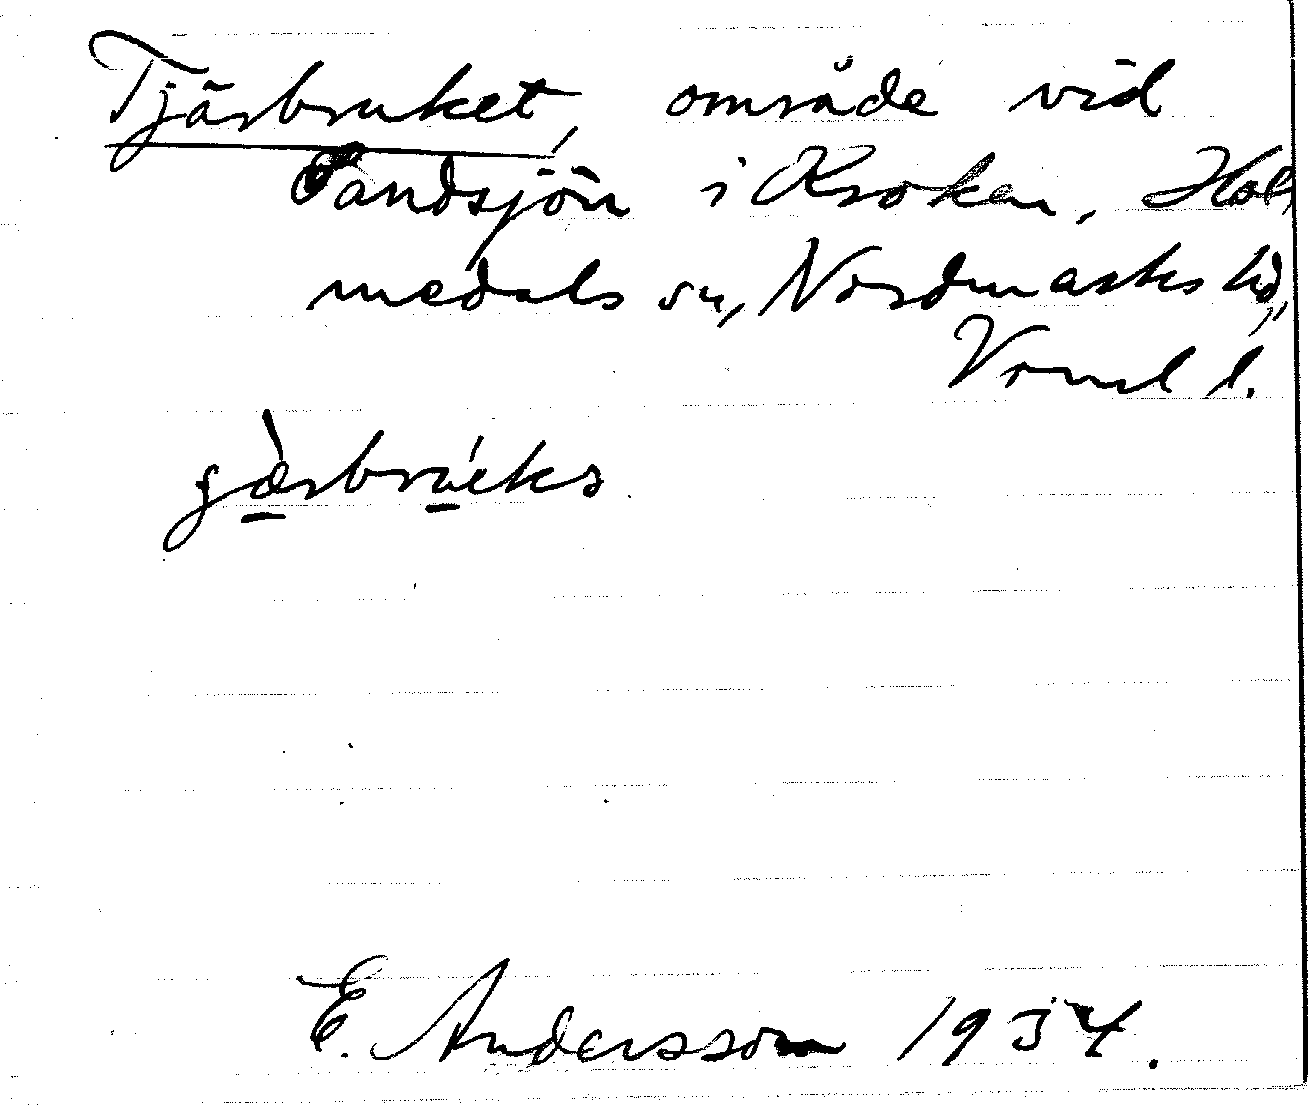 Tjärbruket, område vid
Sandsjön i Kroken, Hol-
medals sn, Nordmarks hd,
Vrml l.
E. Andersson 1934.